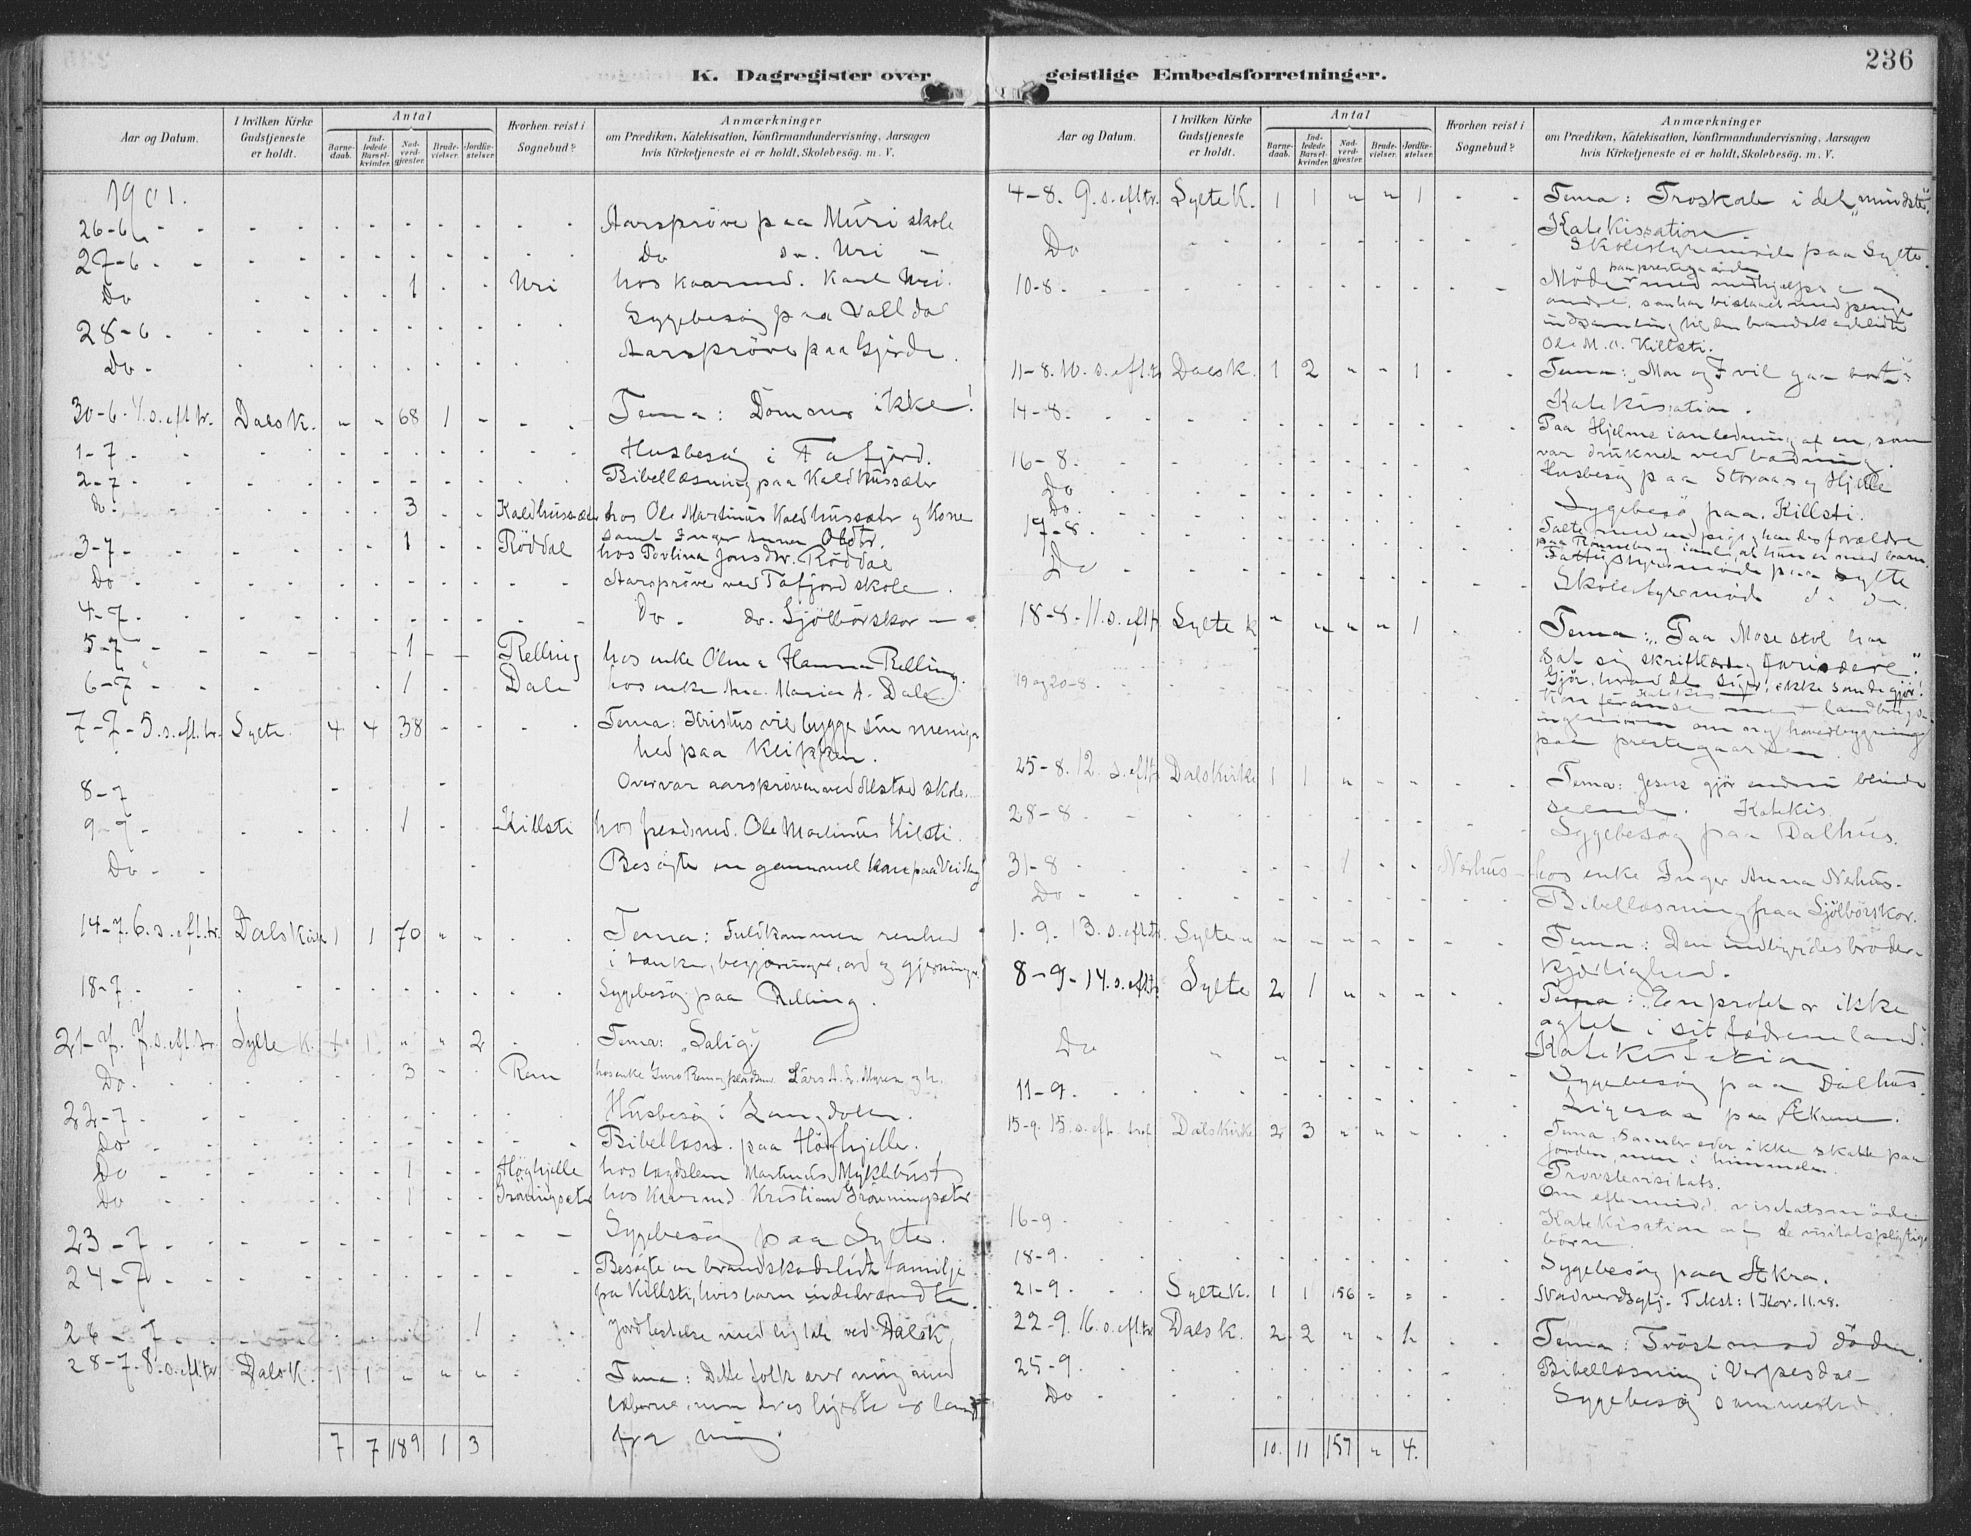 236
K. Dagregister over geistlige Embedsforretninger.
Aar og Datum. I hvilken Kirke Gudstjeneste er holdt. Antal Barnedaab. Indledede Barselkvinder. Nadverdgjæster. Brudevielser. Jordfæstelser. Hvorhen reist i Sognebud? Anmærkninger om Prædiken, Katekisation, Konfirmandundervisning, Aarsagen hvis Kirketjeneste ei er holdt, Skolebesøg. m. V.
1901.
26-6 Aarsprøve paa Muri skole
27-6 Do do. Uri
Do 1 Uri hos kaarmd. Karl Uri.
28-6 Sygebesøg paa Valldal
Do Aarsprøve paa Gjerde.
30-6. 4. s. eft. tr. Dals K. " " 68 1 - Tema: Dømmer ikke!
1-7 Husbesøg i Tafjord.
2-7 Bibellæsning paa Kaldhussæter
do. 3 Kaldhussæter hos Ole Martinus Kaldhussæter og Kone
samt Inger Anna Olsdtr.
3-7 1 Røddal hos Povlina Jonsdtr. Røddal
Do Aarsprøve ved Tafjord skole.
4-7 Do. do. Sjølbørskor
5-7 1 Relling hos enke Olina Hanna Relling.
6-7 1 Dale hos enke Ane Maria A. Dale
7-7-5. s. eft. tr. Sylte 4 4 38 Tema: Kristus vil bygge sin menig-
hed paa klippen.
8-7 Overvar aarsprøven ved Alstad skole.
9-7 1 Killsti hos Ole Martinus Kilsti.
Do Besøgte en gammel kone paa
14-7. 6. s. eft. tr. Dalskirke 1 1 70 " " Tema: Fuldkommen renhed
i tanker, begjæringer, ord og gjerninger
18-7 Sygebesøg paa Relling.
21-7. 7. s. eft. tr. Sylte K. 1 1 " " 2 Tema: "Salig"
Do. 3 Rem hos enke Guro Rem og pladsmd. Lars A. Myren og h.
22-7 Husbesøg i Langdalen.
Do Bibellæsn. paa Høghjelle.
Do 1 Høghjelle hos lægdslem Martinus Myklebust
Do 1 Grønningsæter hos Kaarmd. Kristian Grønningsæter
23-7 Sygebesøg paa Sylte.
24-7 Besøgte en brandskadelidt familje
paa Killsti, hvis barn indebrændte.
26-7 1 Jordfestelse med ligtale ved Dalsk.
28-7. 8. s. eft. tr. Dals K. 1 1 " " " Tema: Dette folk ærer mig med
læberne, men deres hjerte er langt
fra mig.
7 7 189 1 3
Aar og Datum. I hvilken Kirke Gudstjeneste er holdt. Antal Barnedaab. Indledede Barselkvinder. Nadverdgjæster. Brudevielser. Jordfæstelser. Hvorhen reist i Sognebud? Anmærkninger om Prædiken, Katekisation, Konfirmandundervisning, Aarsagen hvis Kirketjeneste ei er holdt, Skolebesøg. m. V.
4-8. 9. s. eft. tr. Sylte K. 1 1 " " 1 Tema: Troskab i det "mindste".
Katekisation.
Do Skolestyremøde paa Sylte.
10-8. Møde med medhjelpere og paa prestegaarden
andre, som har bistaaet med penge
indsamling til den brandskadelidte
Ole M. O. Killsti.
11-8. 10. s. eft. tr. Dalsk. 1 2 " " 1 Tema: "Mon og I vil gaa bort?"
Katekisation.
14-8. Paa Hjelme i anledning af en, som
var druknet ved badning.
16-8. Husbesøg paa Storaas og Hjelle
Do Sygebesø paa Killsti.
Do. Talte med en pige og hendes forældre
paa Rønneberg i anl. at hun er med barn.
17-8. Fattigstyremøde paa Sylte
Do Skolestyremøde do do.
18-8. 11. s. eft. tr. Sylte K " " " " 1 Tema: "Paa Mose stol har
sat sig skriftlærde og farisæere".
Gjør, hvad de siger, ikke som de gjør!
Katekis.
19 og 20-8. Konferanse med landbrugs-
ingeniøren om ny hovedbygning
paa prestegaarden.
25-8. 12. s. eft. tr. Dalskirke 1 1 " " " Tema: Jesus gjør endnu blinde
seende. Katekis.
28-8 Sygebesøg paa Dalhus.
31-8 1 Nerhus hos enke Inger Anna Nerhus.
Do Bibellæsning paa Sjølbørskor.
1.-9. 13. s. eft. tr. Sylte " " " " " Tema: Den indbyrdes broder-
kjærlighed.
8-9-14. s. eft. tr. Sylte 2 1 " " " Tema: "En profet er ikke
agtet i sit fædreneland".
Do Katekisation
11-9. Sygebesøg paa Dalhus.
Ligesaa paa Økrene.
15-9. 15. s. eft. tref. Dalskirke 2 3 " " " Tema: Samler eder ikke skatte paa
jorden, men i himmelen.
Provstevisitats.
Om eftermidd. visitatsmøde
16-9 Katekisation af de visitatspligtige
børn.
18-9. Sygebesøg paa Økra.
21-9. Sylte K. 1 1 156 " " Nadverdsgtj. Tekst: 1 Kor. 11.28.
22-9. 16. s. eft. tr. Dals K. 2 2 " " 1 Tema: Trøst mod døden.
25-9. Bibellæsning i Verpesdal
Do Sygebesøg sammesteds.
10. 11 157 " 4.